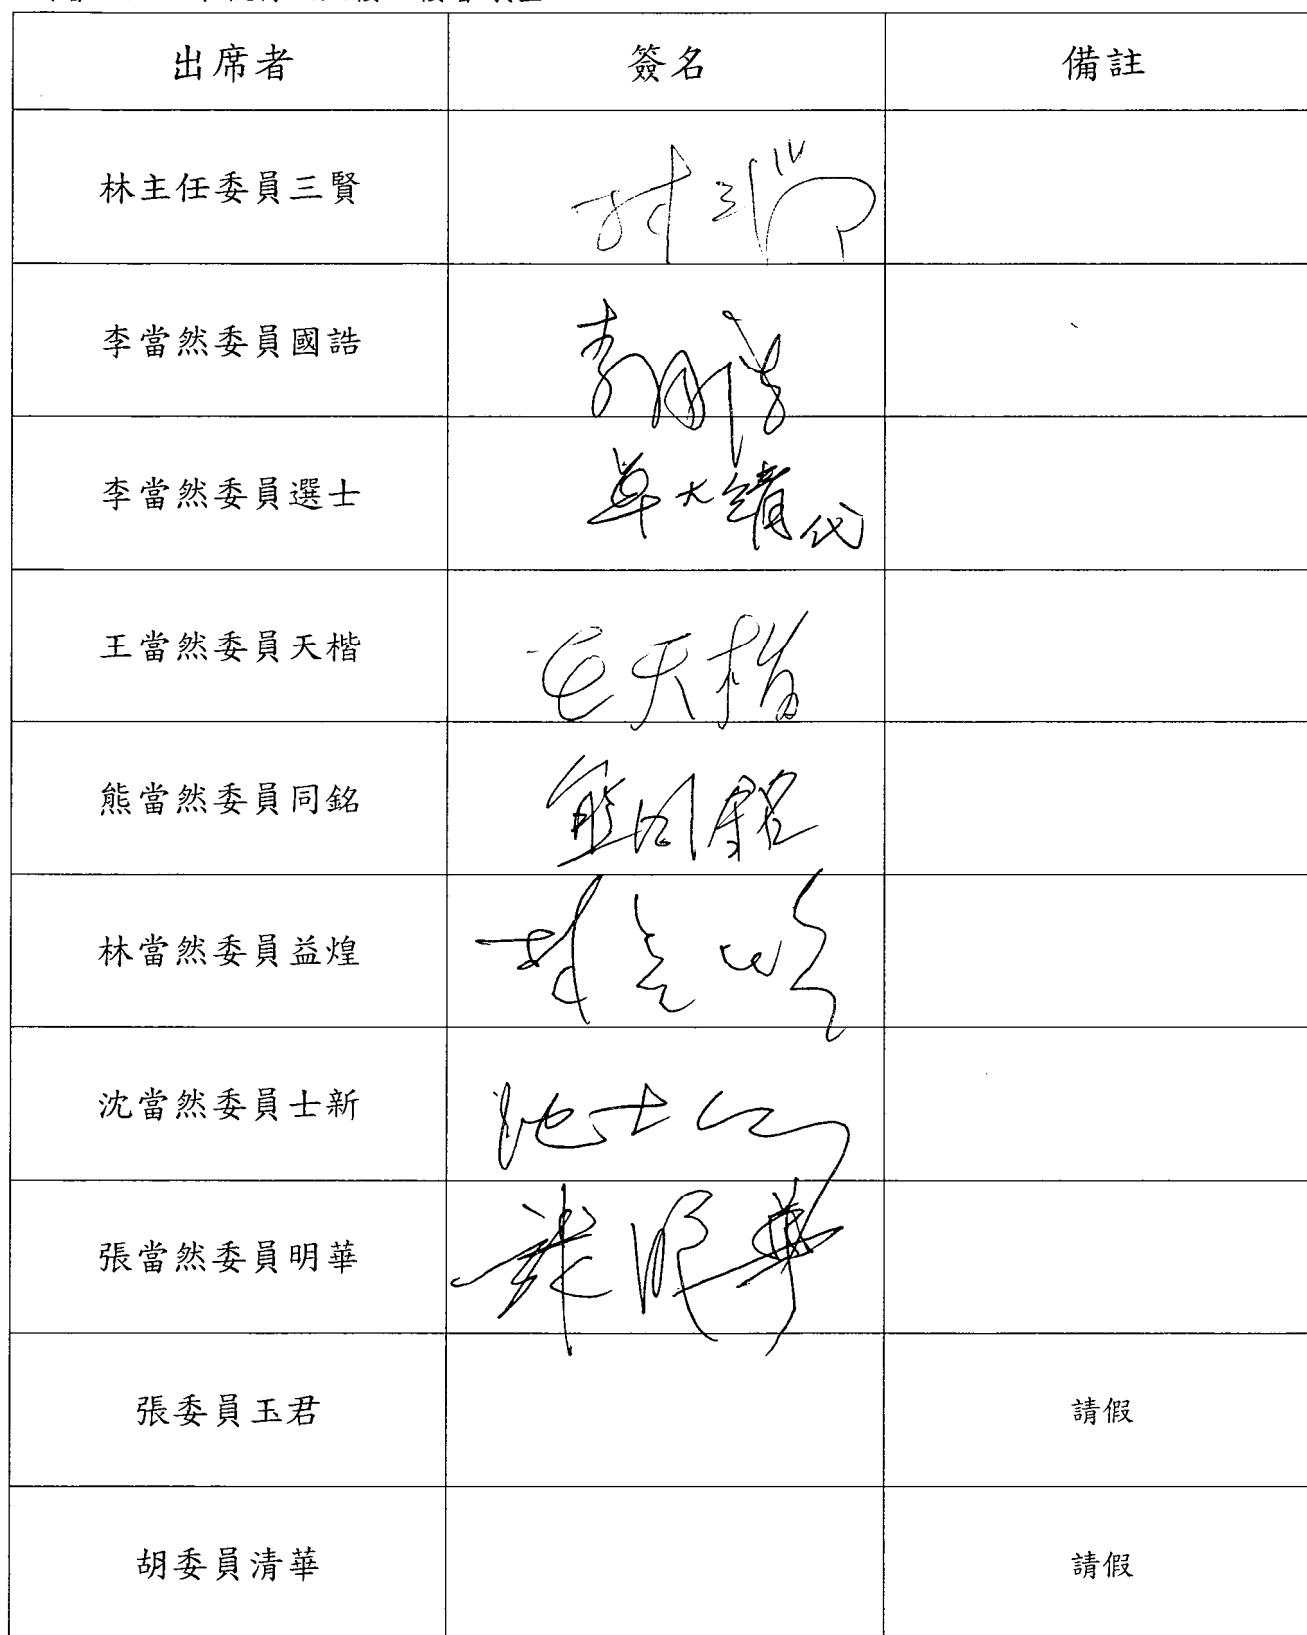 出席者 簽名 備註
林主任委員三賢
李當然委員國誥 李國誥
李當然委員選士 卓大靖代
王當然委員天楷 王天楷
熊當然委員同銘 熊同銘
林當然委員益煌 林益煌
沈當然委員士新 沈士新
張當然委員明華 張明華
張委員玉君 請假
胡委員清華 請假